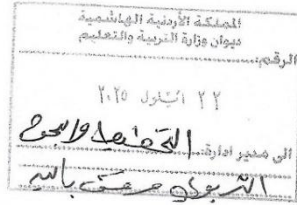 المملكة الأردنية الهاشمية
ديوان وزارة التربية والتعليم
الرقم:
٢٢ أيلول ٢٠٢٥
الى مدير ادارة: التخطيط والبحث
التربوي